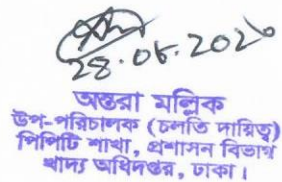 28.06.2020
অন্তরা মল্লিক
উপ-পরিচালক (চলতি দায়িত্ব)
পিপিটি শাখা, প্রশাসন বিভাগ
খাদ্য অধিদপ্তর, ঢাকা।